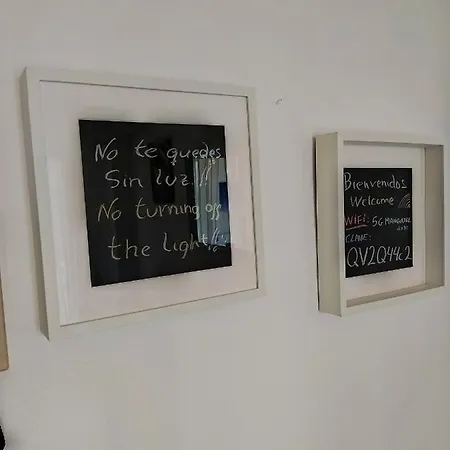 No te quedes
Sin luz!!!
No turning off
the light!!!
Bienvenidos
Welcome
WIFI: 5G
CLAVE:
QV2Q44c2